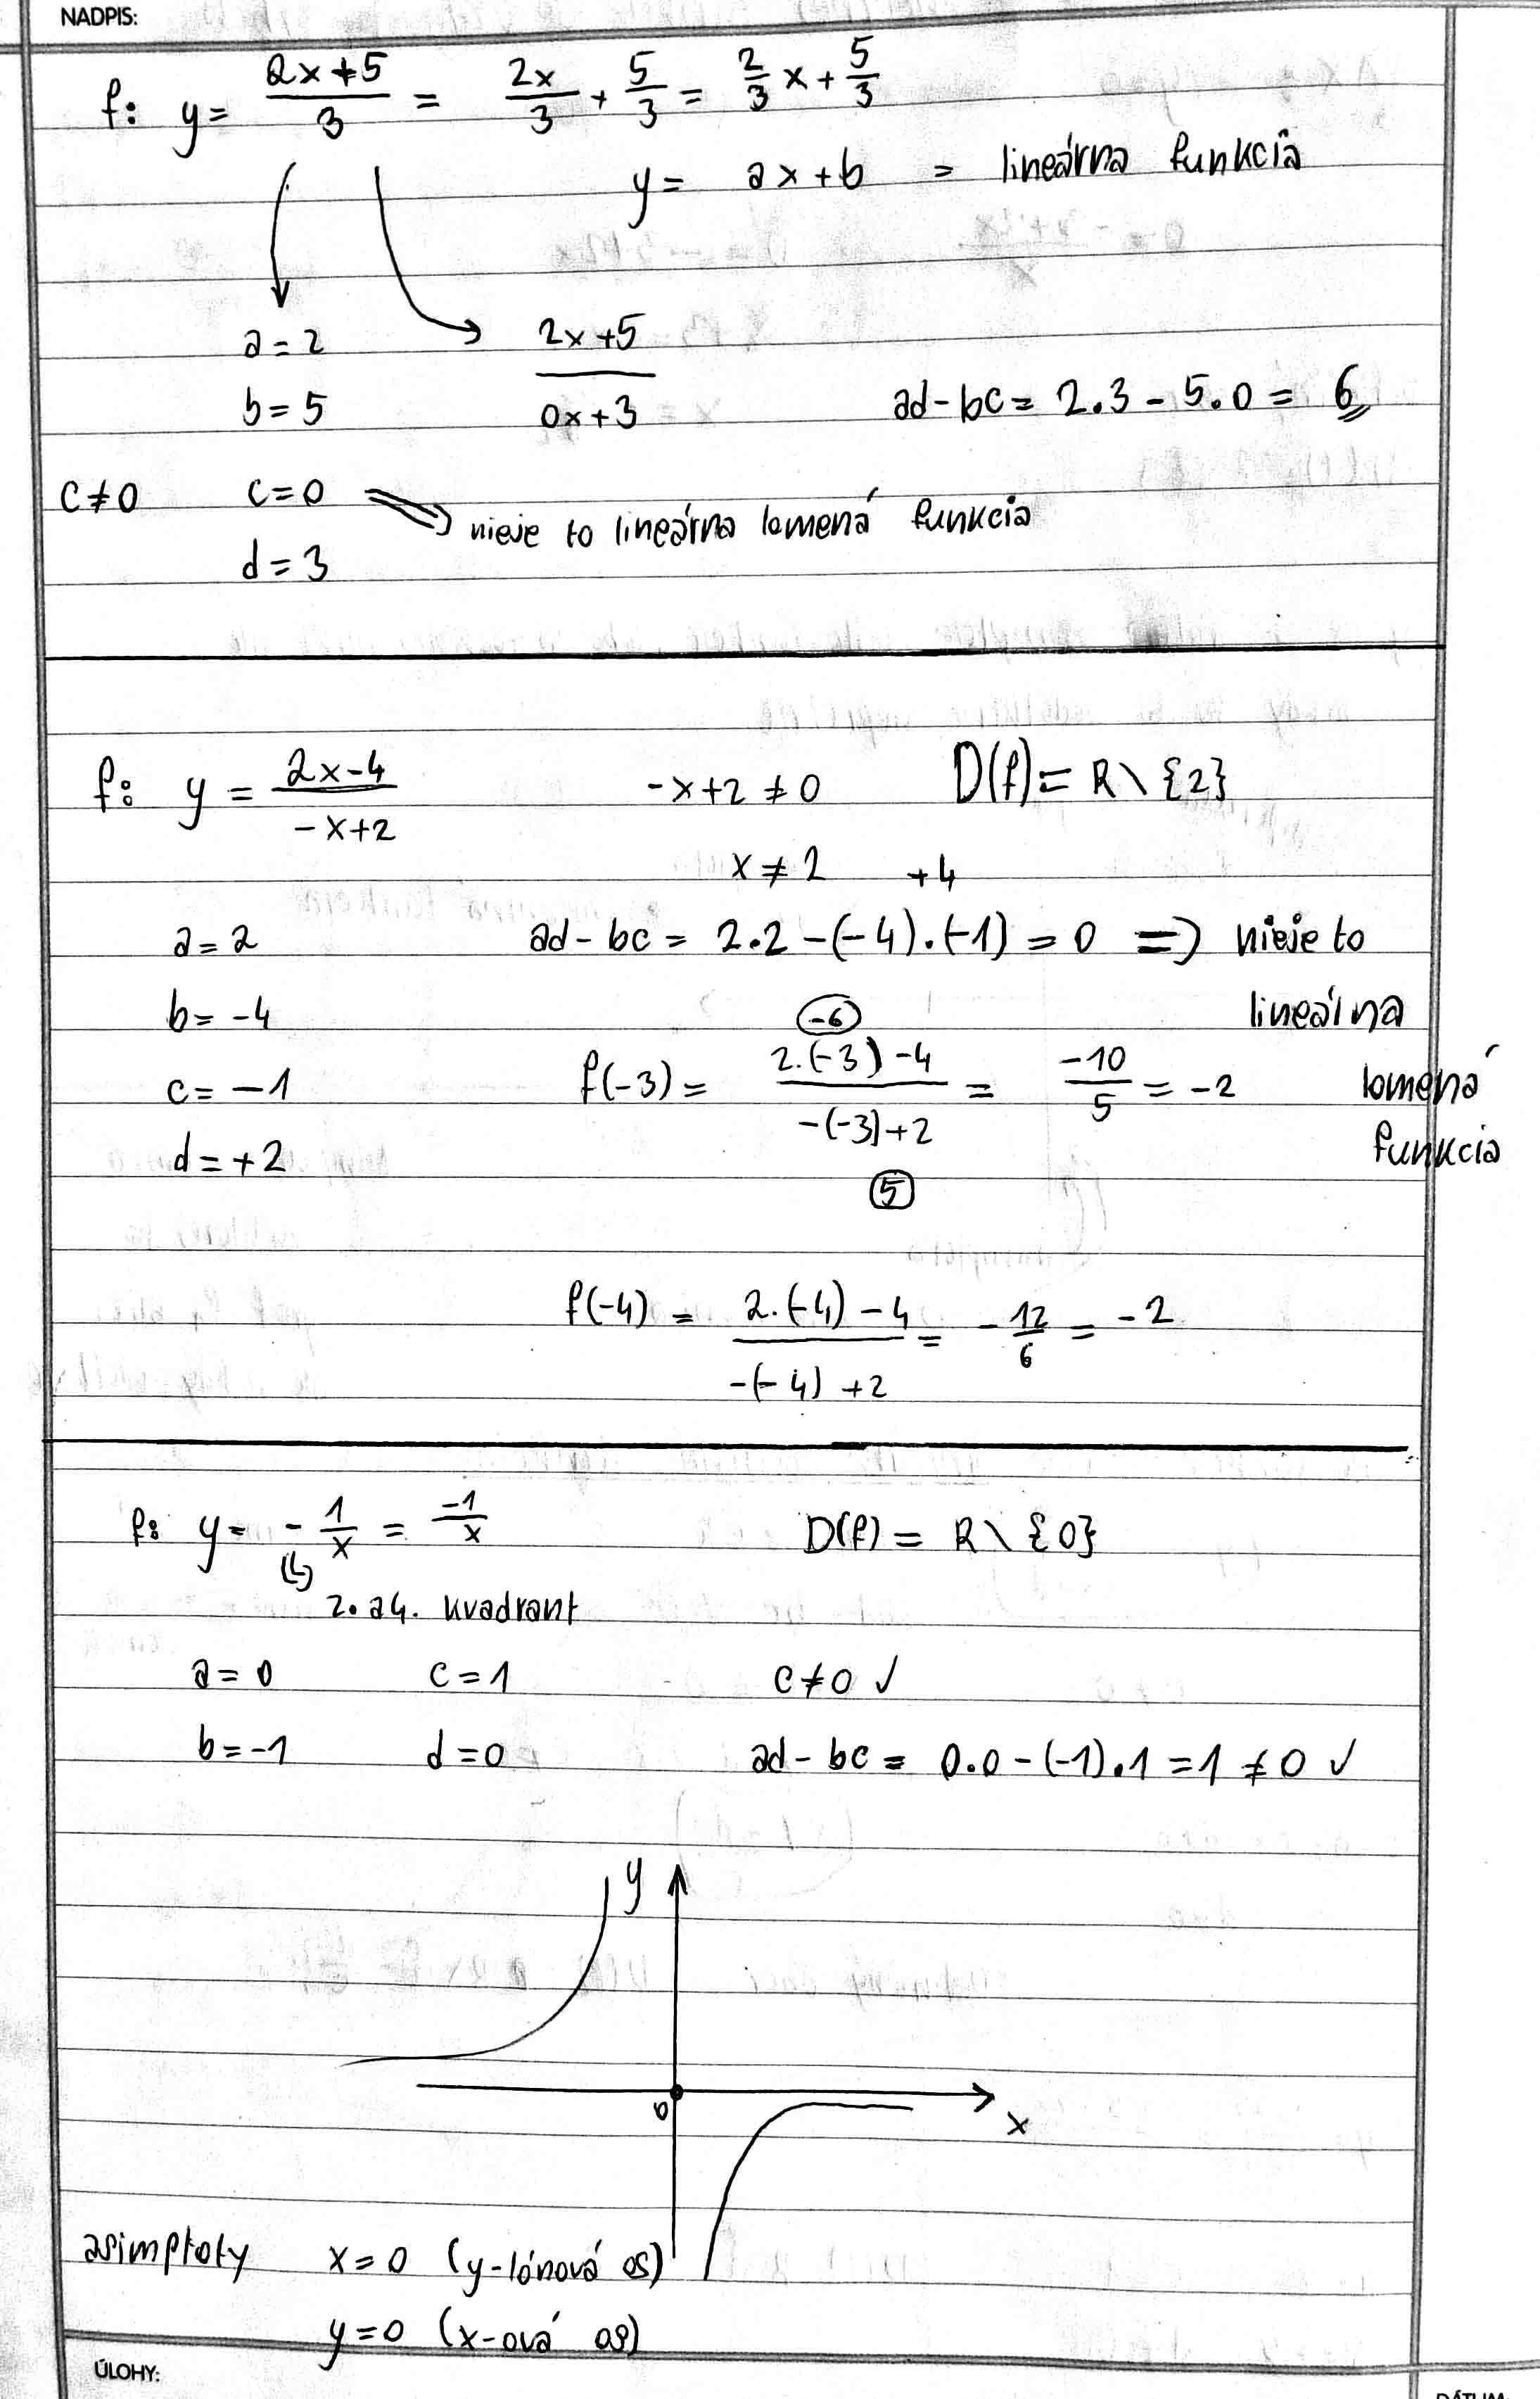 NADPIS:
f: y = (2x+5)/3 = 2x/3 + 5/3 = 2/3 x + 5/3
y = ax+b = lineárna funkcia
a=2
2x+5
b=5
0x+3
ad-bc = 2.3 - 5.0 = 6
c≠0 c=0 => nieje to lineárna lomená funkcia
d=3
f: y = (2x-4)/(-x+2) -x+2 ≠ 0 D(f) = R \ {2}
x ≠ 2 +4
a=2 ad-bc = 2.2 -(-4).(-1) = 0 => nieje to
lineárna
lomená
funkcia
b=-4
c=-1
d=+2
-6
f(-3) = (2.(-3)-4)/(-(-3)+2) = -10/5 = -2
5
f(-4) = (2.(-4)-4)/(-(-4)+2) = -12/6 = -2
f: y = -1/x = -1/x D(f) = R \ {0}
2. a 4. kvadrant
a=0 c=1 c≠0 ✓
b=-1 d=0 ad-bc = 0.0-(-1).1 = 1 ≠ 0 ✓
y
0
x
asimptoty x=0 (y-lónová os)
y=0 (x-ová os)
ÚLOHY: